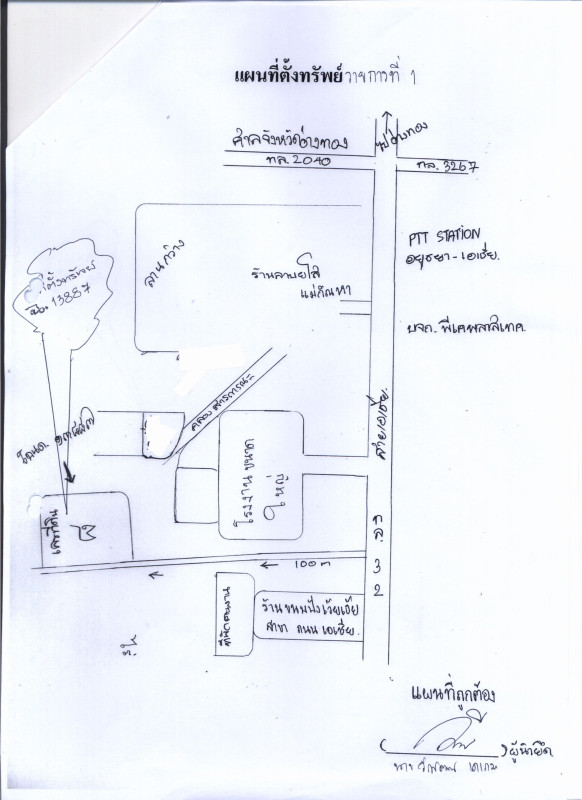 แผนที่ตั้งทรัพย์รายการที่ 1
ศาลจังหวัดอ่างทอง
ทล. 2040
ทล. 3267
ไปอ่างทอง
PTT STATION
อยุธยา - เอเชีย.
ลานกว้าง
ที่ตั้งทรัพย์
13887
ร้านลาบยโส
แม่กัณหา
บจก. พีเคพลาสเทค
คลองสาธารณะ
สายเอเซีย
โรงงานขนาด
ใหญ่
เลขที่ดิน
100 m
ทล. 32
ที่พักคนงาน
ร้านขนมปังเวียเอีย
สาขา ถนนเอเชีย.
แผนที่ถูกต้อง
ผู้นำยึด